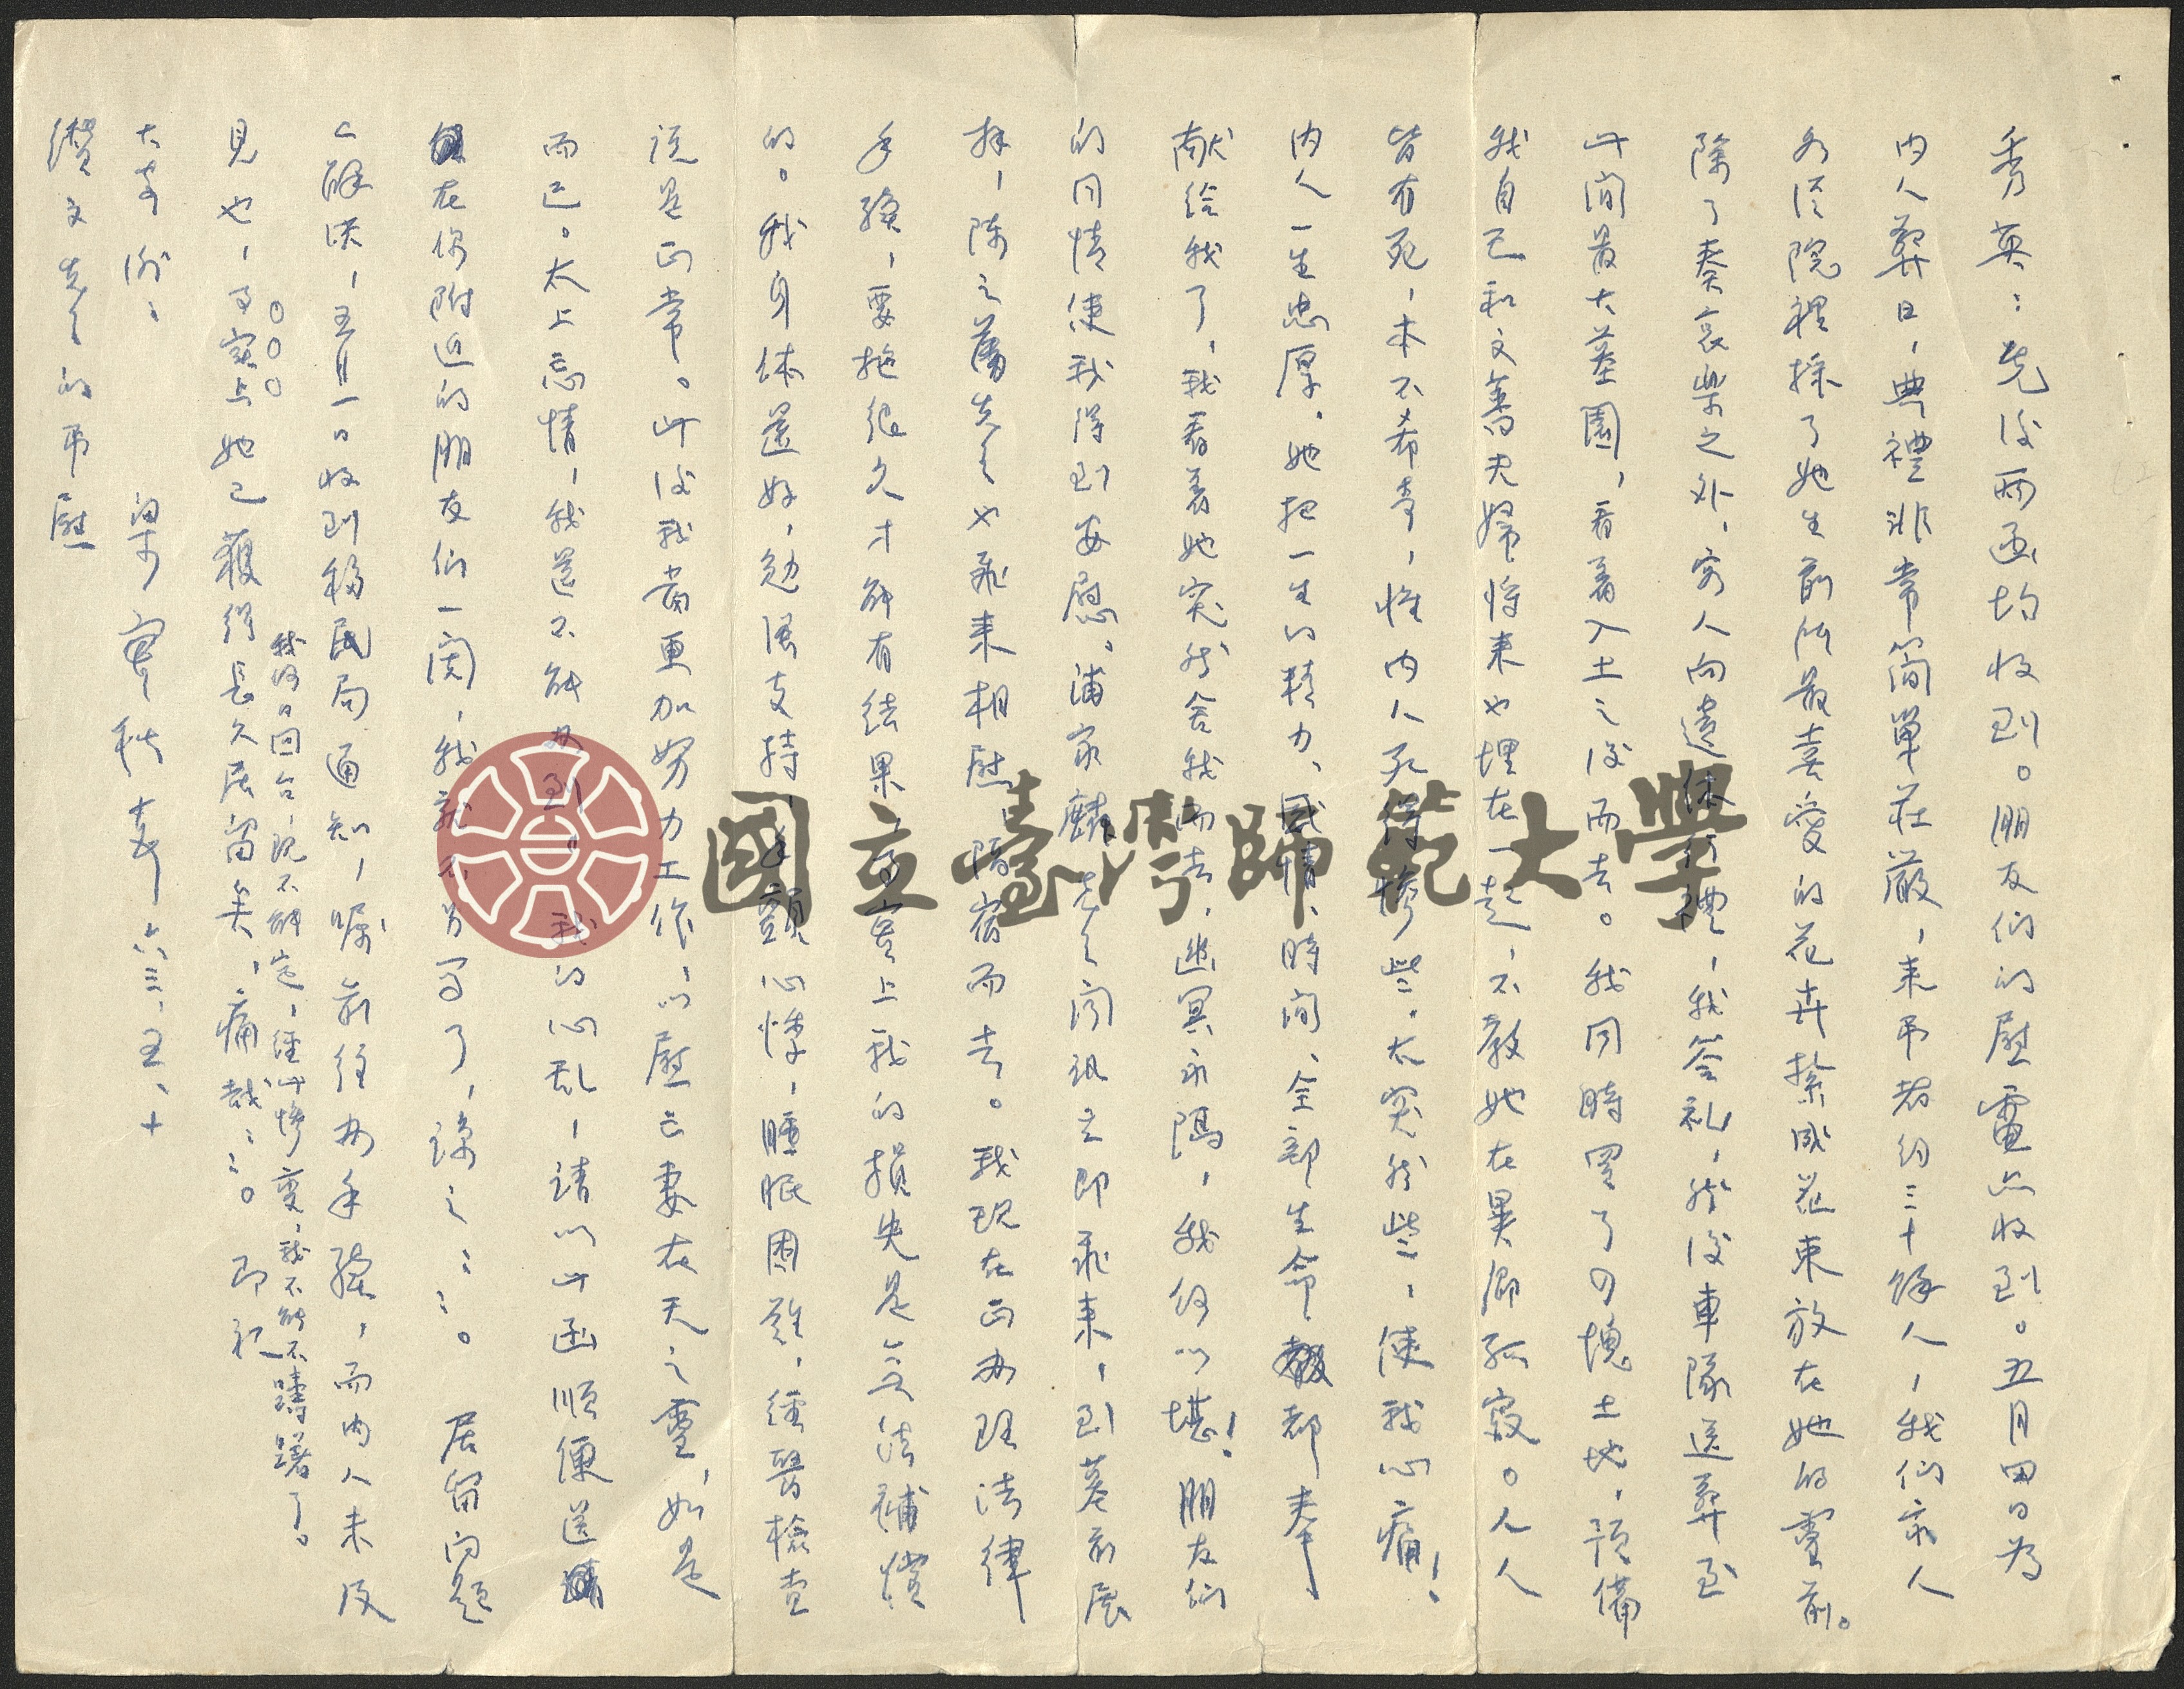 秀英：先後兩函均收到。朋友们的慰電亦收到。五月四日为
内人葬日，典禮非常簡單莊嚴，来吊者约三十餘人，我们家人
為從院裡採了她生前所最喜愛的花卉紮成花束放在她的靈前。
除了奏哀樂之外，客人向遺体行禮，我答礼，然後車隊送葬至
此间最大墓園，看着入土之後而去。我同時買了四塊土地，預備
我自己和文薔夫婦将来也埋在一起，不教她在異鄉孤寂。人人
皆有死，本不希奇，惟内人死得慘些，太突然些，使我心痛！
内人一生忠厚，她把一生的精力、感情、時间、全部生命都奉
献给我了，我看着她突然舍我而去，幽冥永隔，我何以堪！朋友们
的同情使我得到安慰，浦家麟先生闻讯立即飛来，到墓前展
拜，陳之藩先生也飛来相慰，隔宿而去。我现在正办理法律
手續，要拖很久才能有结果，事实上我的損失是無法補償
的。我身体還好，勉强支持，手顫心悸，睡眠困難，經醫檢查
说是正常。此後我當更加努力工作，以慰亡妻在天之靈，如是
而已。太上忘情，我還不能办到。我的心乱，请以此函順便送请
在你附近的朋友们一阅，我就不另写了，諒之……。居留问题
亦解决，五月一日收到移民局通知，嘱前往办手續，而内人未及
見也，事实上她已獲得長久居留矣，痛哉……。即祝
○○○我何日回台，现不能定，經此慘變，我不能不躊躇了。
大安 俐：
梁實秋 六三、五、十
瓚文先生的吊慰
國立臺灣師範大學